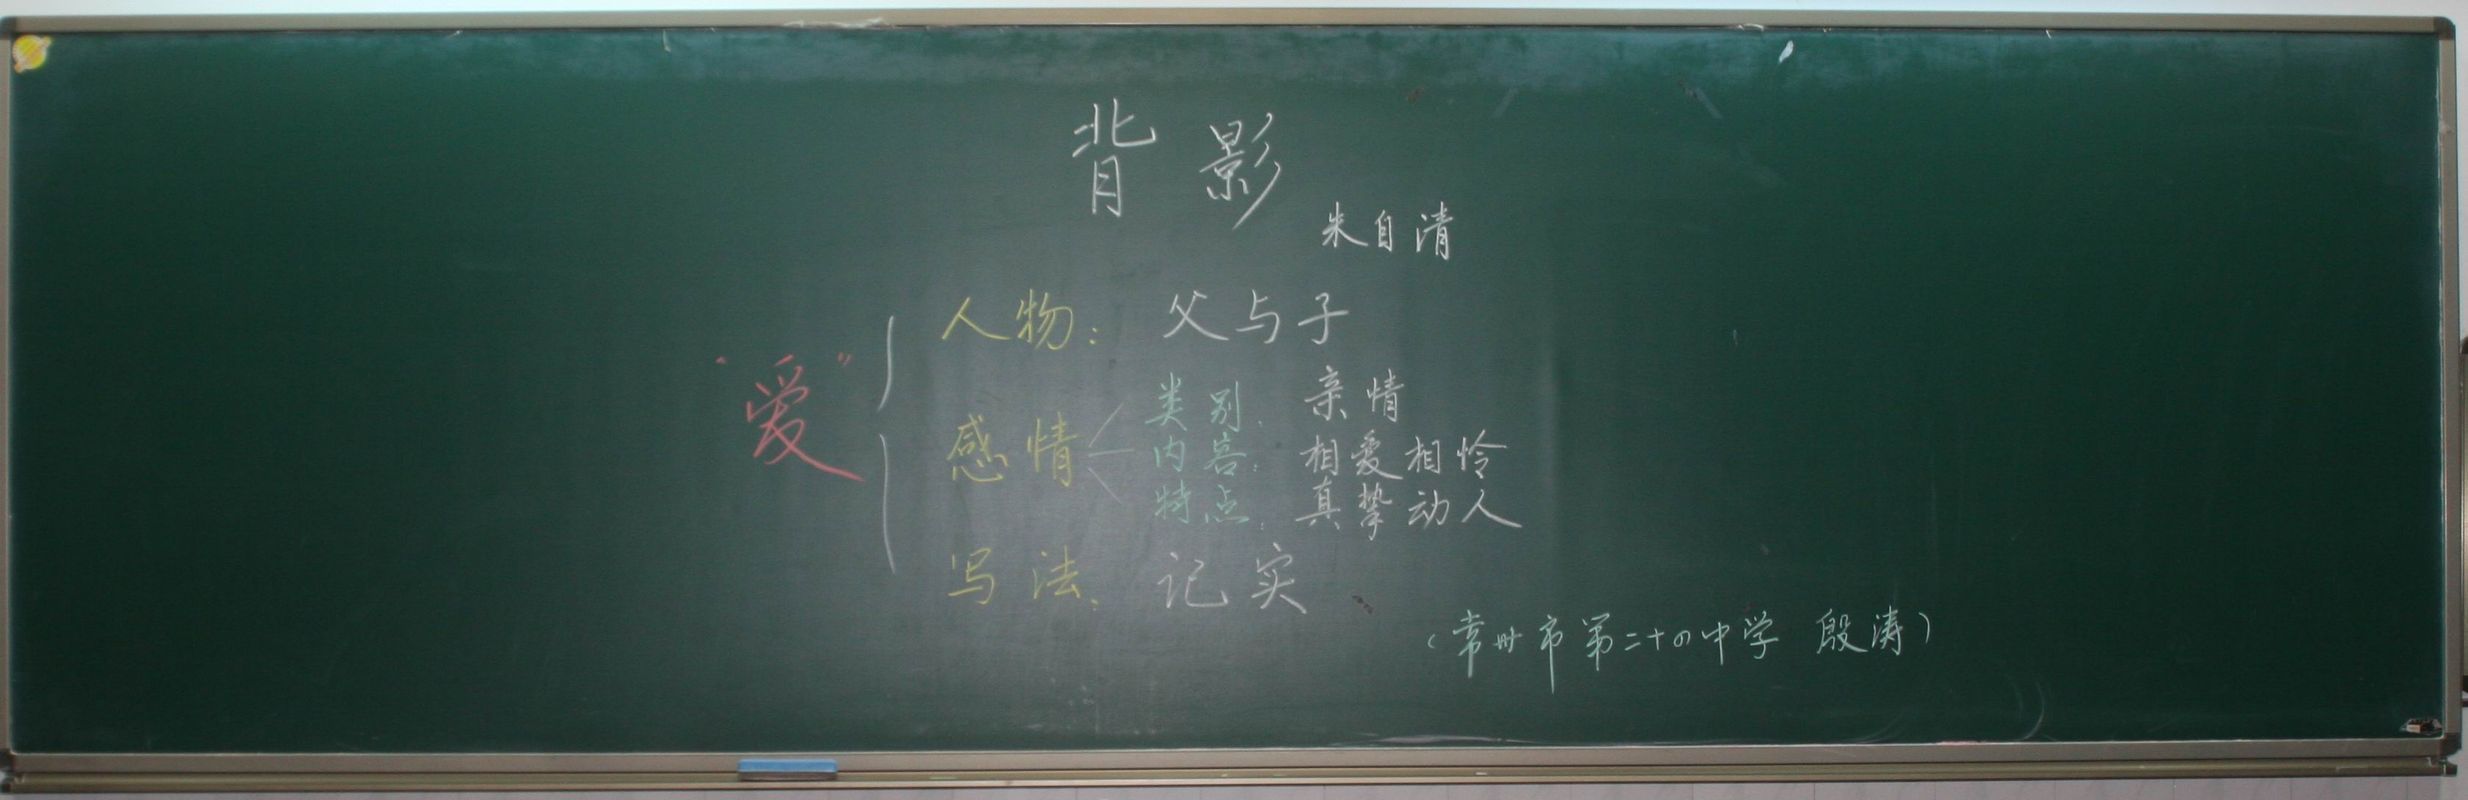 背影
朱自清
"爱"
人物：父与子
感情
类别：亲情
内容：相爱相怜
特点：真挚动人
写法：记实
（常州市第二十四中学 殷涛）